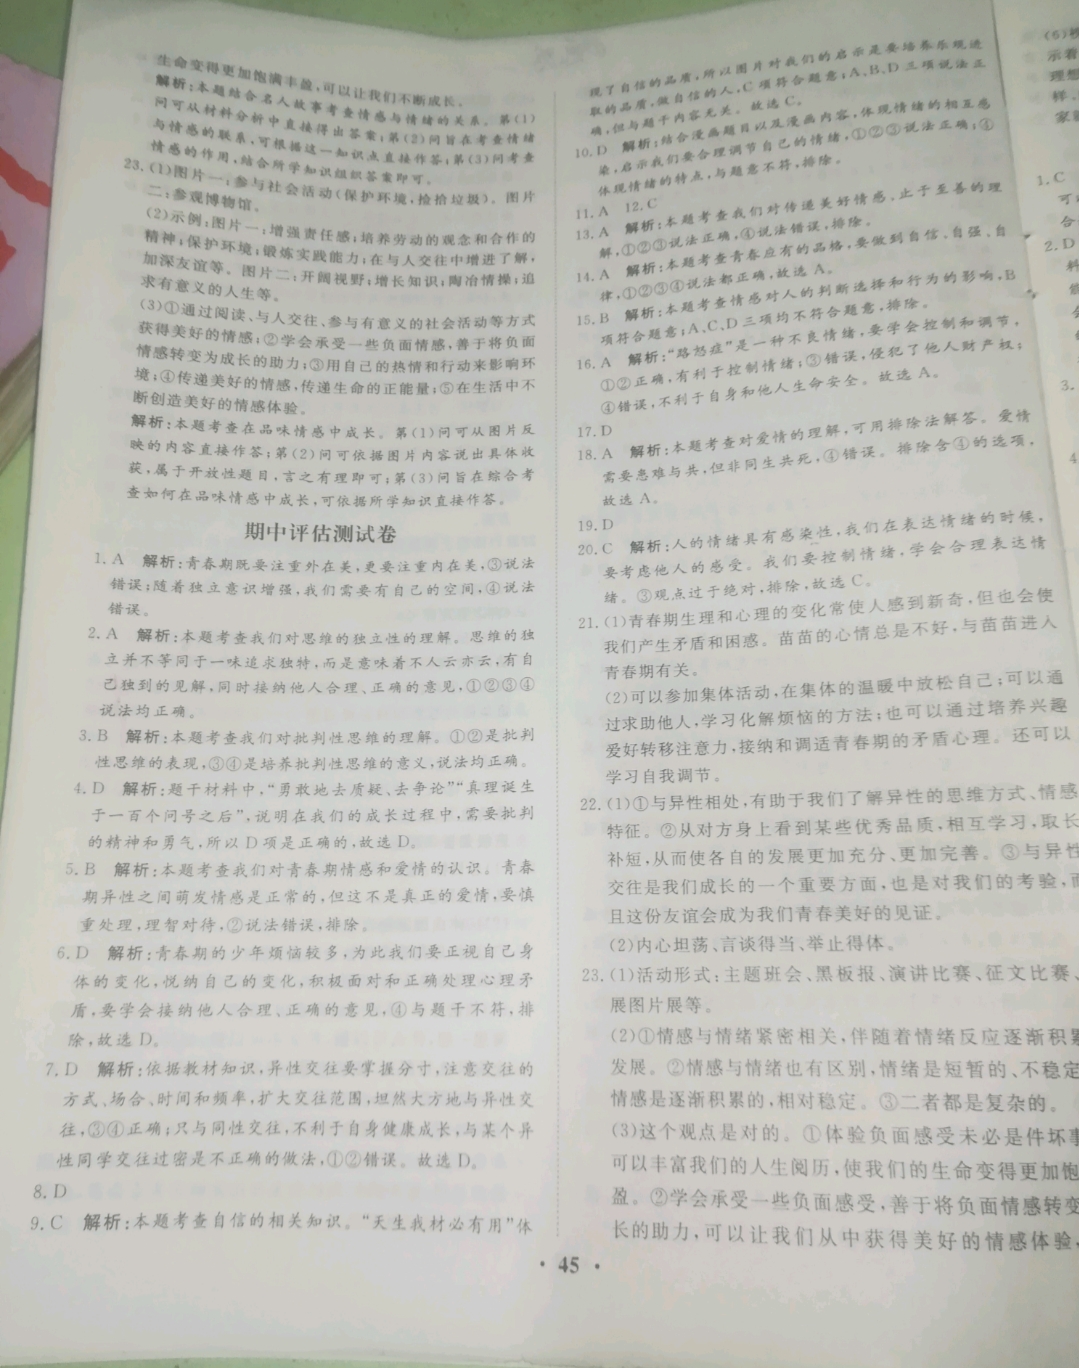 生命变得更加饱满丰盈,可以让我们不断成长。
解析:本题结合名人故事考查情感与情绪的关系。第(1)
问可从材料分析中直接得出答案;第(2)问旨在考查情绪
与情感的联系,可根据这一知识点直接作答;第(3)问考查
情感的作用,结合所学知识组织答案即可。
23.(1)图片一:参与社会活动(保护环境,捡拾垃圾)。图片
二:参观博物馆。
(2)示例:图片一:增强责任感;培养劳动的观念和合作的
精神;保护环境;锻炼实践能力;在与人交往中增进了解,
加深友谊等。图片二:开阔视野;增长知识;陶冶情操;追
求有意义的人生等。
(3)①通过阅读、与人交往、参与有意义的社会活动等方式
获得美好的情感;②学会承受一些负面情感,善于将负面
情感转变为成长的助力;③用自己的热情和行动来影响环
境;④传递美好的情感,传递生命的正能量;⑤在生活中不
断创造美好的情感体验。
解析:本题考查在品味情感中成长。第(1)问可从图片反
映的内容直接作答;第(2)问可依据图片内容说出具体收
获,属于开放性题目,言之有理即可;第(3)问旨在综合考
查如何在品味情感中成长,可依据所学知识直接作答。
期中评估测试卷
1.A 解析:青春期既要注重外在美,更要注重内在美,③说法
错误;随着独立意识增强,我们需要有自己的空间,④说法
错误。
2.A 解析:本题考查我们对思维的独立性的理解。思维的独
立并不等同于一味追求独特,而是意味着不人云亦云,有自
己独到的见解,同时接纳他人合理、正确的意见,①②③④
说法均正确。
3.B 解析:本题考查我们对批判性思维的理解。①②是批判
性思维的表现,③④是培养批判性思维的意义,说法均正确。
4.D 解析:题干材料中,“勇敢地去质疑、去争论”“真理诞生
于一百个问号之后”,说明在我们的成长过程中,需要批判
的精神和勇气,所以D项是正确的,故选D。
5.B 解析:本题考查我们对青春期情感和爱情的认识。青春
期异性之间萌发情感是正常的,但这不是真正的爱情,要慎
重处理,理智对待,②说法错误,排除。
6.D 解析:青春期的少年烦恼较多,为此我们要正视自己身
体的变化,悦纳自己的变化,积极面对和正确处理心理矛
盾,要学会接纳他人合理、正确的意见,④与题干不符,排
除,故选D。
7.D 解析:依据教材知识,异性交往要掌握分寸,注意交往的
方式、场合、时间和频率,扩大交往范围,坦然大方地与异性交
往,③④正确;只与同性交往,不利于自身健康成长,与某个异
性同学交往过密是不正确的做法,①②错误。故选D。
8.D
9.C 解析:本题考查自信的相关知识。“天生我材必有用”体
现了自信的品质,所以图片对我们的启示是要培养乐观进
取的品质,做自信的人,C项符合题意;A、B、D三项说法正
确,但与题干内容无关。故选C。
10.D 解析:结合漫画题目以及漫画内容,体现情绪的相互感
染,启示我们要合理调节自己的情绪,①②③说法正确;④
体现情绪的特点,与题意不符,排除。
11.A 12.C
13.A 解析:本题考查我们对传递美好情感,止于至善的理
解,①②③说法正确,④说法错误,排除。
14.A 解析:本题考查青春应有的品格,要做到自信、自强、自
律,①②③④说法都正确,故选A。
15.B 解析:本题考查情感对人的判断选择和行为的影响,B
项符合题意;A、C、D三项均不符合题意,排除。
16.A 解析:“路怒症”是一种不良情绪,要学会控制和调节,
①②正确,有利于控制情绪;③错误,侵犯了他人财产权;
④错误,不利于自身和他人生命安全。故选A。
17.D
18.A 解析:本题考查对爱情的理解,可用排除法解答。爱情
需要患难与共,但非同生共死,④错误。排除含④的选项,
故选A。
19.D
20.C 解析:人的情绪具有感染性,我们在表达情绪的时候,
要考虑他人的感受。我们要控制情绪,学会合理表达情
绪。③观点过于绝对,排除,故选C。
21.(1)青春期生理和心理的变化常使人感到新奇,但也会使
我们产生矛盾和困惑。苗苗的心情总是不好,与苗苗进入
青春期有关。
(2)可以参加集体活动,在集体的温暖中放松自己;可以通
过求助他人,学习化解烦恼的方法;也可以通过培养兴趣
爱好转移注意力,接纳和调适青春期的矛盾心理。还可以
学习自我调节。
22.(1)①与异性相处,有助于我们了解异性的思维方式、情感
特征。②从对方身上看到某些优秀品质,相互学习,取长
补短,从而使各自的发展更加充分、更加完善。③与异性
交往是我们成长的一个重要方面,也是对我们的考验,而
且这份友谊会成为我们青春美好的见证。
(2)内心坦荡、言谈得当、举止得体。
23.(1)活动形式:主题班会、黑板报、演讲比赛、征文比赛、
展图片展等。
(2)①情感与情绪紧密相关,伴随着情绪反应逐渐积累
发展。②情感与情绪也有区别,情绪是短暂的、不稳定
情感是逐渐积累的,相对稳定。③二者都是复杂的。
(3)这个观点是对的。①体验负面感受未必是件坏事
可以丰富我们的人生阅历,使我们的生命变得更加饱
盈。②学会承受一些负面感受,善于将负面情感转变
长的助力,可以让我们从中获得美好的情感体验,
• 45 •
示着
理想
样,
家
1.C
可
合
2.D
料
能
会
3.
4